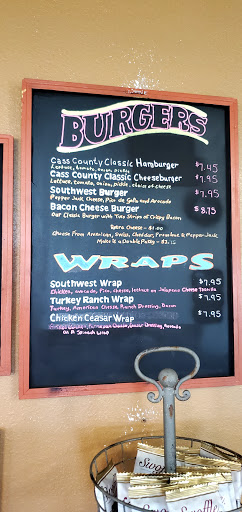 BURGERS
Cass County Classic Hamburger $7.45
Lettuce, tomato, onion, pickles
Cass County Classic Cheeseburger $7.95
Lettuce, tomato, onion, pickle, choice of cheese
Southwest Burger $7.95
Pepper Jack Cheese, Pico de Gallo and Avocado
Bacon Cheese Burger $8.75
Our Classic Burger with Two Strips of Crispy Bacon
Extra Cheese - $1.00
Choose From American, Swiss, Cheddar, Provolone & Pepper-Jack
Make it a Double Patty -
WRAPS
Southwest Wrap $7.95
Chicken, avocado, Pico, cheese, lettuce on Jalapeno Cheese Tortilla
Turkey Ranch Wrap $7.95
Turkey, American Cheese, Ranch Dressing, Bacon
Chicken Ceasar Wrap $7.95
Parmesan Cheese, Ceasar Dressing, Avocado
on A Spinach Wrap